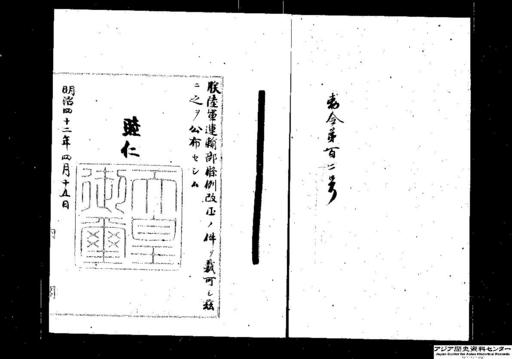 勅令第百二号
朕陸軍運輸部條例改正ノ件ヲ裁可シ茲
ニ之ヲ公布セシム
睦仁
天皇
御璽
明治四十二年四月十五日
アジア歴史資料センター
Japan Center for Asian Historical Records